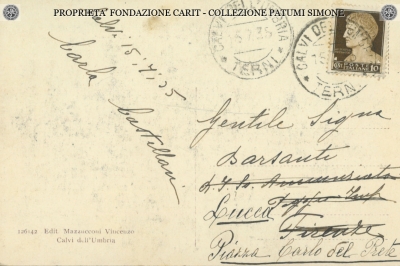 PROPRIETA' FONDAZIONE CARIT - COLLEZIONE PATUMI SIMONE
Calvi 15.7.35
Carla
Castellari
CALVI DELL'UMBRIA
TERNI
CALVI DELL'UMBRIA
TERNI
10
Gentile Signa
Barsanti
Lucca
Firenze
Piazza Carlo del Prete
126-42 Edit. Mazzocconi Vincenzo
Calvi dell'Umbria